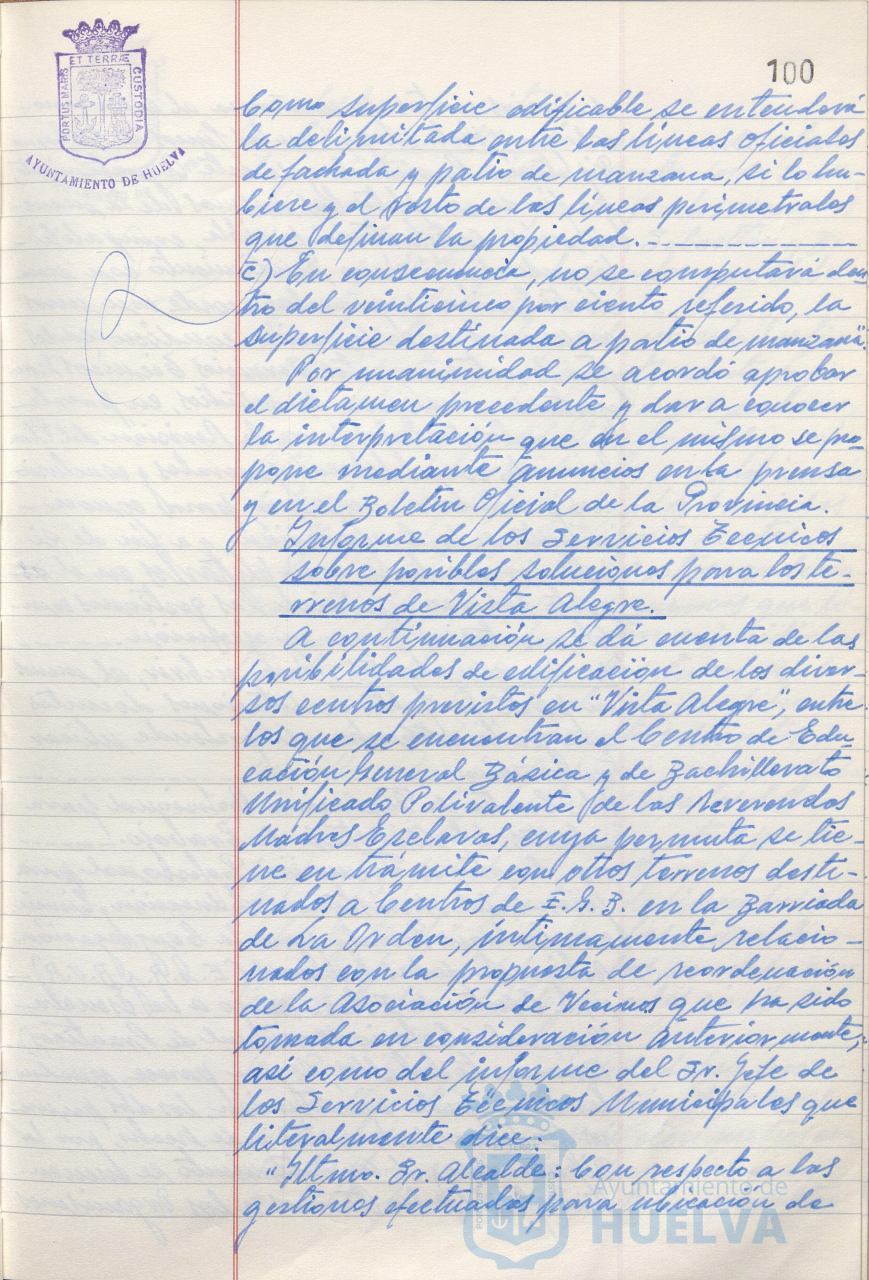 100
ET TERRÆ
PORTUS MARIS
CUSTODIA
AYUNTAMIENTO DE HUELVA
Como superficie edificable se entenderá
la delimitada entre las líneas oficiales
de fachada y patio de manzana, si lo hu-
biere y el resto de las líneas perimetrales
que definan la propiedad.
c) En consecuencia, no se computará den-
tro del veinticinco por ciento referido, la
superficie destinada a patio de manzana".
Por unanimidad se acordó aprobar
el dictamen precedente y dar a conocer
la interpretación que en el mismo se pro-
pone mediante anuncios en la prensa
y en el Boletín Oficial de la Provincia.
Informe de los Servicios Técnicos
sobre posibles soluciones para los te-
rrenos de Vista Alegre.
A continuación se dá cuenta de las
posibilidades de edificación de los diver-
sos centros previstos en "Vista Alegre", entre
los que se encuentran el Centro de Edu-
cación General Básica y de Bachillerato
Unificado Polivalente de las Reverendas
Madres Esclavas, cuya permuta se tie-
ne en trámite con otros terrenos desti-
nados a Centros de E.G.B. en la Barriada
de La Orden, íntimamente relacio-
nados con la propuesta de reordenación
de la Asociación de Vecinos que ha sido
tomada en consideración anteriormente,
así como del informe del Sr. Jefe de
los Servicios Técnicos Municipales que
literalmente dice:
"Iltmo. Sr. Alcalde: Con respecto a las
gestiones efectuadas para ubicación de
Ayuntamiento de
HUELVA